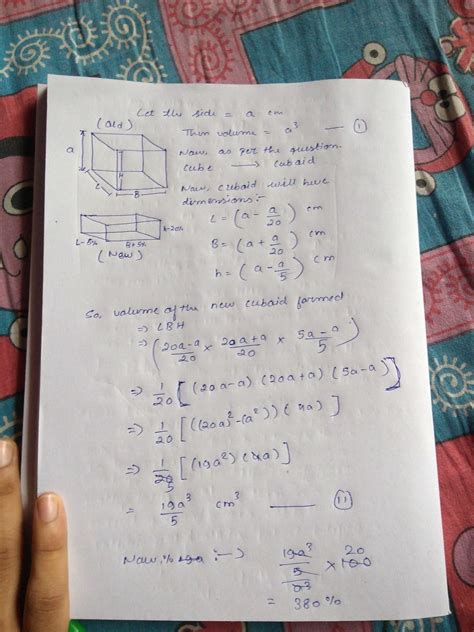 Let the side = a cm
(Old)
Then volume = a³ —— (I)
a
Now, as per the question.
cube ⟶ cuboid
H
L
B
Now, cuboid will have
dimensions:-
L = (a - a/20) cm
h-20%
L-5%
B+5%
B = (a + a/20) cm
(New)
h = (a - a/5) cm
So, volume of the new cuboid formed
⇒ LBH
⇒ (20a-a/20 × 20a+a/20 × 5a-a/5)
⇒ 1/20 [(20a-a) (20a+a) (5a-a)]
⇒ 1/20 [((20a)²-(a²)) (4a)]
⇒ 1/20 5 [(19a²) (4a)]
= 19a³/5 cm³ —— (II)
Now, % :→ 19a³/5/a³ × 100 20
= 380%